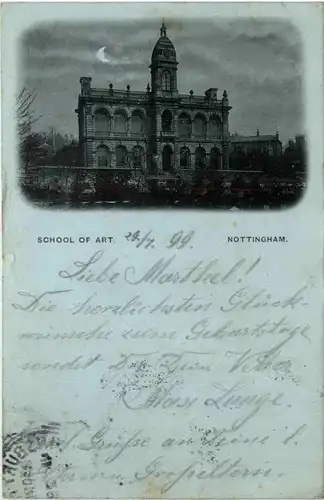 SCHOOL OF ART. 29/7. 99. NOTTINGHAM.
Liebe Marthel!
Die herzlichsten Glück-
wünsche zum Geburtstage
sendet Dir Dein Vetter
Max Lange.
Grüsse an Deine l.